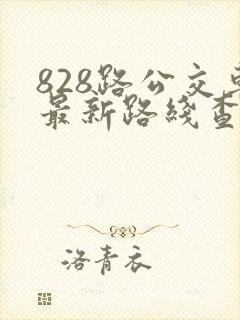 828路公交车
最新路线查
洛青衣